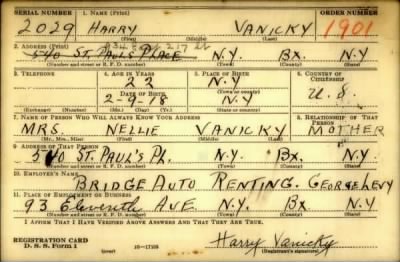 SERIAL NUMBER 1. NAME (Print) ORDER NUMBER
2029 HARRY VANICKY 1901
(First) (Middle) (Last)
2. ADDRESS (Print)
540 ST. PAULS PLACE N.Y. Bx. N.Y.
(Number and street or R. F. D. number) (Town) (County) (State)
3. TELEPHONE 4. AGE IN YEARS 5. PLACE OF BIRTH 6. COUNTRY OF CITIZENSHIP
22 N.Y.
DATE OF BIRTH (Town or county)
2-9-18 N.Y. U.S.
(Exchange) (Number) (Mo.) (Day) (Yr.) (State or country)
7. NAME OF PERSON WHO WILL ALWAYS KNOW YOUR ADDRESS 8. RELATIONSHIP OF THAT PERSON
MRS. NELLIE VANICKY MOTHER
(Mr., Mrs., Miss) (First) (Middle) (Last)
9. ADDRESS OF THAT PERSON
540 ST. PAUL'S PL. N.Y. Bx. N.Y.
(Number and street or R. F. D. number) (Town) (County) (State)
10. EMPLOYER'S NAME
BRIDGE AUTO RENTING. GEORGE LEVY
11. PLACE OF EMPLOYMENT OR BUSINESS
93 Eleventh AVE N.Y. N.Y. N.Y.
(Number and street or R. F. D. number) (Town) (County) (State)
I AFFIRM THAT I HAVE VERIFIED ABOVE ANSWERS AND THAT THEY ARE TRUE.
REGISTRATION CARD
D. S. S. Form 1 Harry Vanicky
(Registrant's signature)